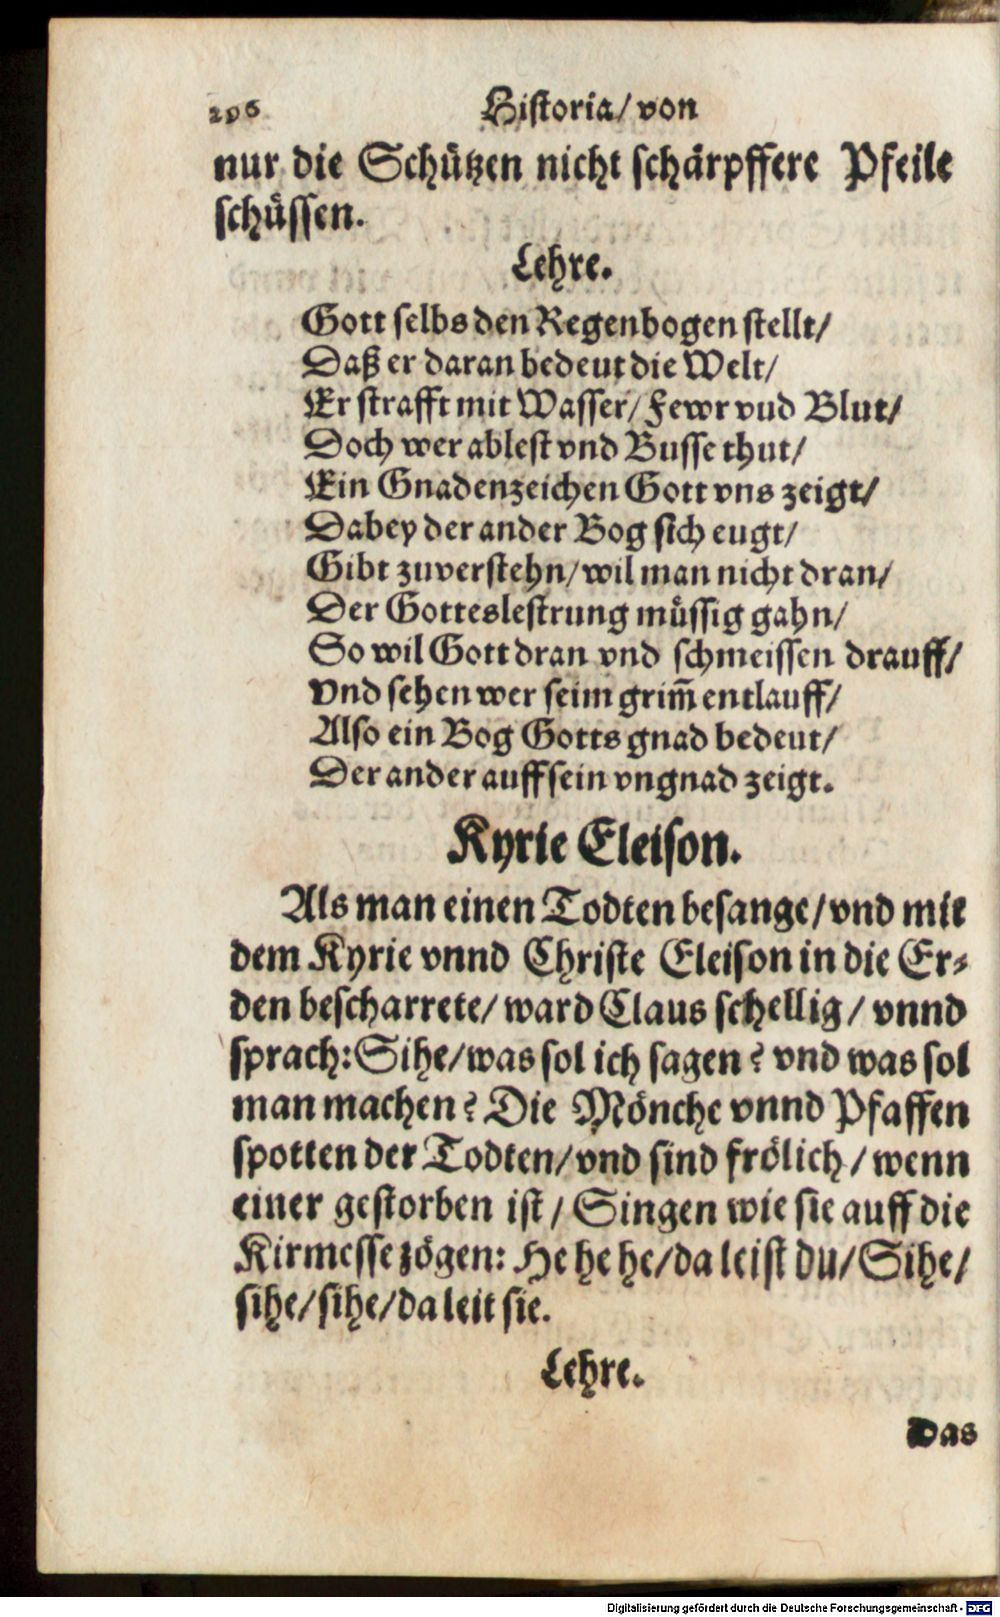 296 Historia/ von
nur die Schützen nicht schärpffere Pfeile
schüssen.
Lehre.
Gott selbs den Regenbogen stellt/
Daß er daran bedeut die Welt/
Er strafft mit Wasser/ Fewr vnd Blut/
Doch wer ablest vnd Busse thut/
Ein Gnadenzeichen Gott vns zeigt/
Dabey der ander Bog sich eugt/
Gibt zuverstehn/ wil man nicht dran/
Der Gotteslestrung müssig gahn/
So wil Gott dran vnd schmeissen drauff/
Vnd sehen wer seim grim̃ entlauff/
Also ein Bog Gotts gnad bedeut/
Der ander auff sein vngnad zeigt.
Kyrie Eleison.
Als man einen Todten besange/ vnd mit
dem Kyrie vnnd Christe Eleison in die Er-
den bescharrete/ ward Claus schellig/ vnnd
sprach: Sihe/ was sol ich sagen? vnd was sol
man machen? Die Mönche vnnd Pfaffen
spotten der Todten/ vnd sind frölich/ wenn
einer gestorben ist/ Singen wie sie auff die
Kirmesse zögen: He he he/ da leist du/ Sihe/
sihe/ sihe/ da leit sie.
Lehre.
Das
Digitalisierung gefördert durch die Deutsche Forschungsgemeinschaft - DFG